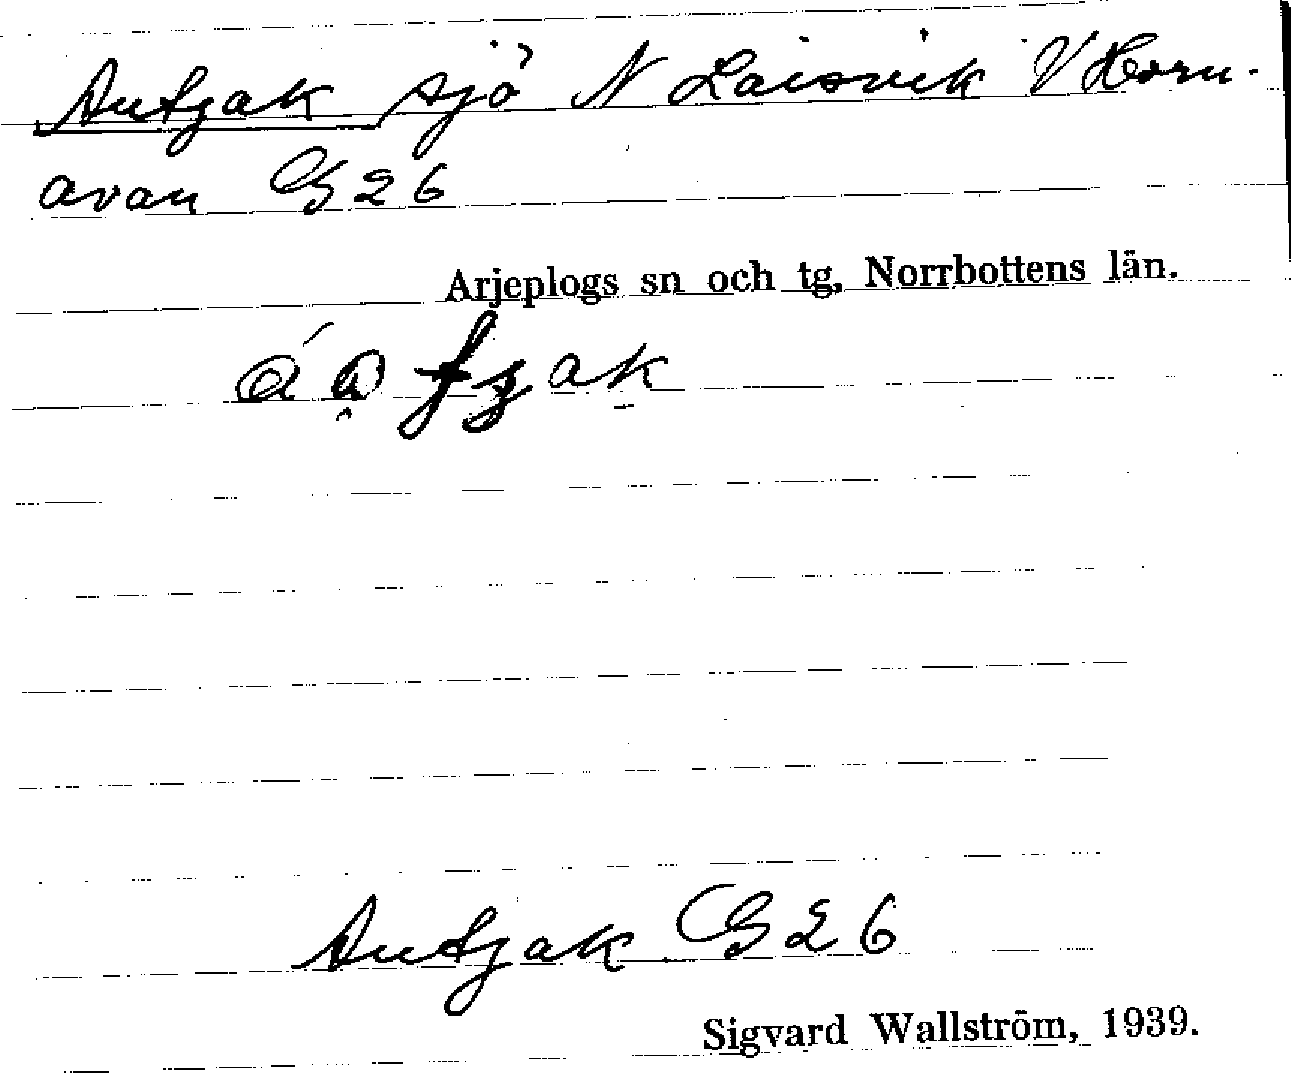 Autjak sjö N Laisvik V Horn-
avan G 26
Arjeplogs sn och tg, Norrbottens län.
Autjak G 26
Sigvard Wallström, 1939.